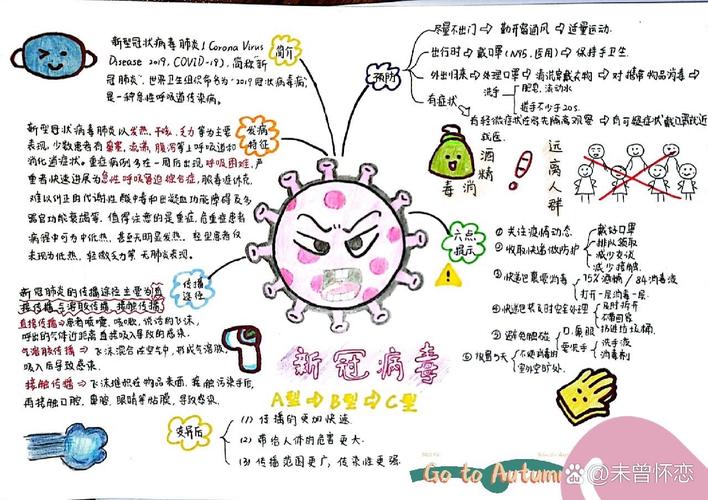 新型冠状病毒肺炎(Corona Virus
Disease 2019, COVID-19), 简称"新
冠肺炎", 世界卫生组织命名为"2019冠状病毒病",
是一种急性呼吸道传染病。
简介
新型冠状病毒肺炎以发热、干咳、乏力等为主要
表现, 少数患者有鼻塞、流涕、腹泻等上呼吸道和
消化道症状。重症病例多在一周后出现呼吸困难, 严
重者快速进展为急性呼吸窘迫综合症, 脓毒症休克,
难以纠正的代谢性酸中毒和出凝血功能障碍及多
器官功能衰竭等。值得注意的是重症, 危重症患者
病程中可为中低热, 甚至无明显发热。轻型患者仅
表现为低热, 轻微乏力等 无肺炎表现。
发病
特征
新冠肺炎的传播途径主要为直
接传播, 气溶胶传播, 接触传播。
直接传播 → 患者喷嚏、咳嗽, 说话的飞沫,
呼出的气体近距离直接吸入导致的感染。
气溶胶传播 → 飞沫混合在空气中, 形成气溶胶,
吸入后导致感染。
接触传播 → 飞沫组织在物品表面, 接触污染手后,
再接触口腔, 鼻腔, 眼睛等粘膜, 导致感染。
传播
途径
预防
尽量不出门 → 勤开窗通风 → 适量运动.
出行时 → 戴口罩(N95, 医用) → 保持手卫生.
外出归来 → 处理口罩 → 清洗需戴衣物 → 对携带物品消毒
洗手
肥皂, 流动水
搓手不少于20s.
有症状
有轻微症状在家先隔离观察 → 有可疑症状戴口罩就近
就医.
酒精
消毒
远离人群
六点
提示
① 关注疫情动态
② 收取快递做防护
戴好口罩
排队领取
减少交谈
减少接触.
③ 快递包裹要消毒
75%酒精 / 84消毒液
打开一层消毒一层.
④ 快递包装及时安全处理
及时拆开
不带回家
扔进垃圾桶.
⑤ 避免触碰
口、鼻眼
要洗手
洗手液
消毒剂
新冠病毒
A型 → B型 → C型
变异后
(1) 传播的更加快速.
(2) 带给人体的危害更大.
(3) 传播范围更广, 传染性更强.
Go to Autum
@未曾怀恋